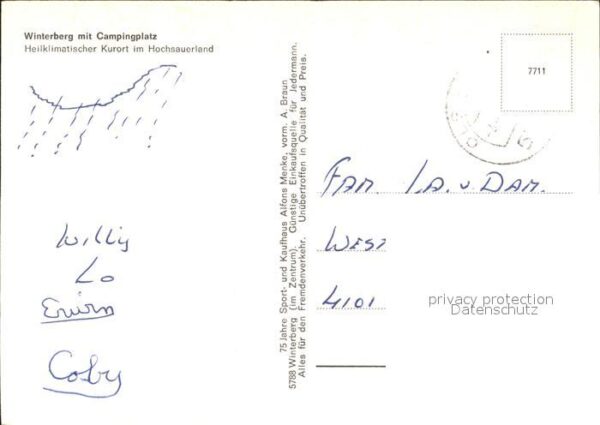 Winterberg mit Campingplatz
Heilklimatischer Kurort im Hochsauerland
Willy
Lo
Erwin
Coby
75 Jahre Sport- und Kaufhaus Alfons Menke, vorm. A. Braun
5788 Winterberg (im Zentrum). Günstige Einkaufsquelle für Jedermann.
Alles für den Fremdenverkehr. Unübertroffen in Qualität und Preis.
7711
FAM. I.A. v DAM.
WEST
4101
privacy protection
Datenschutz